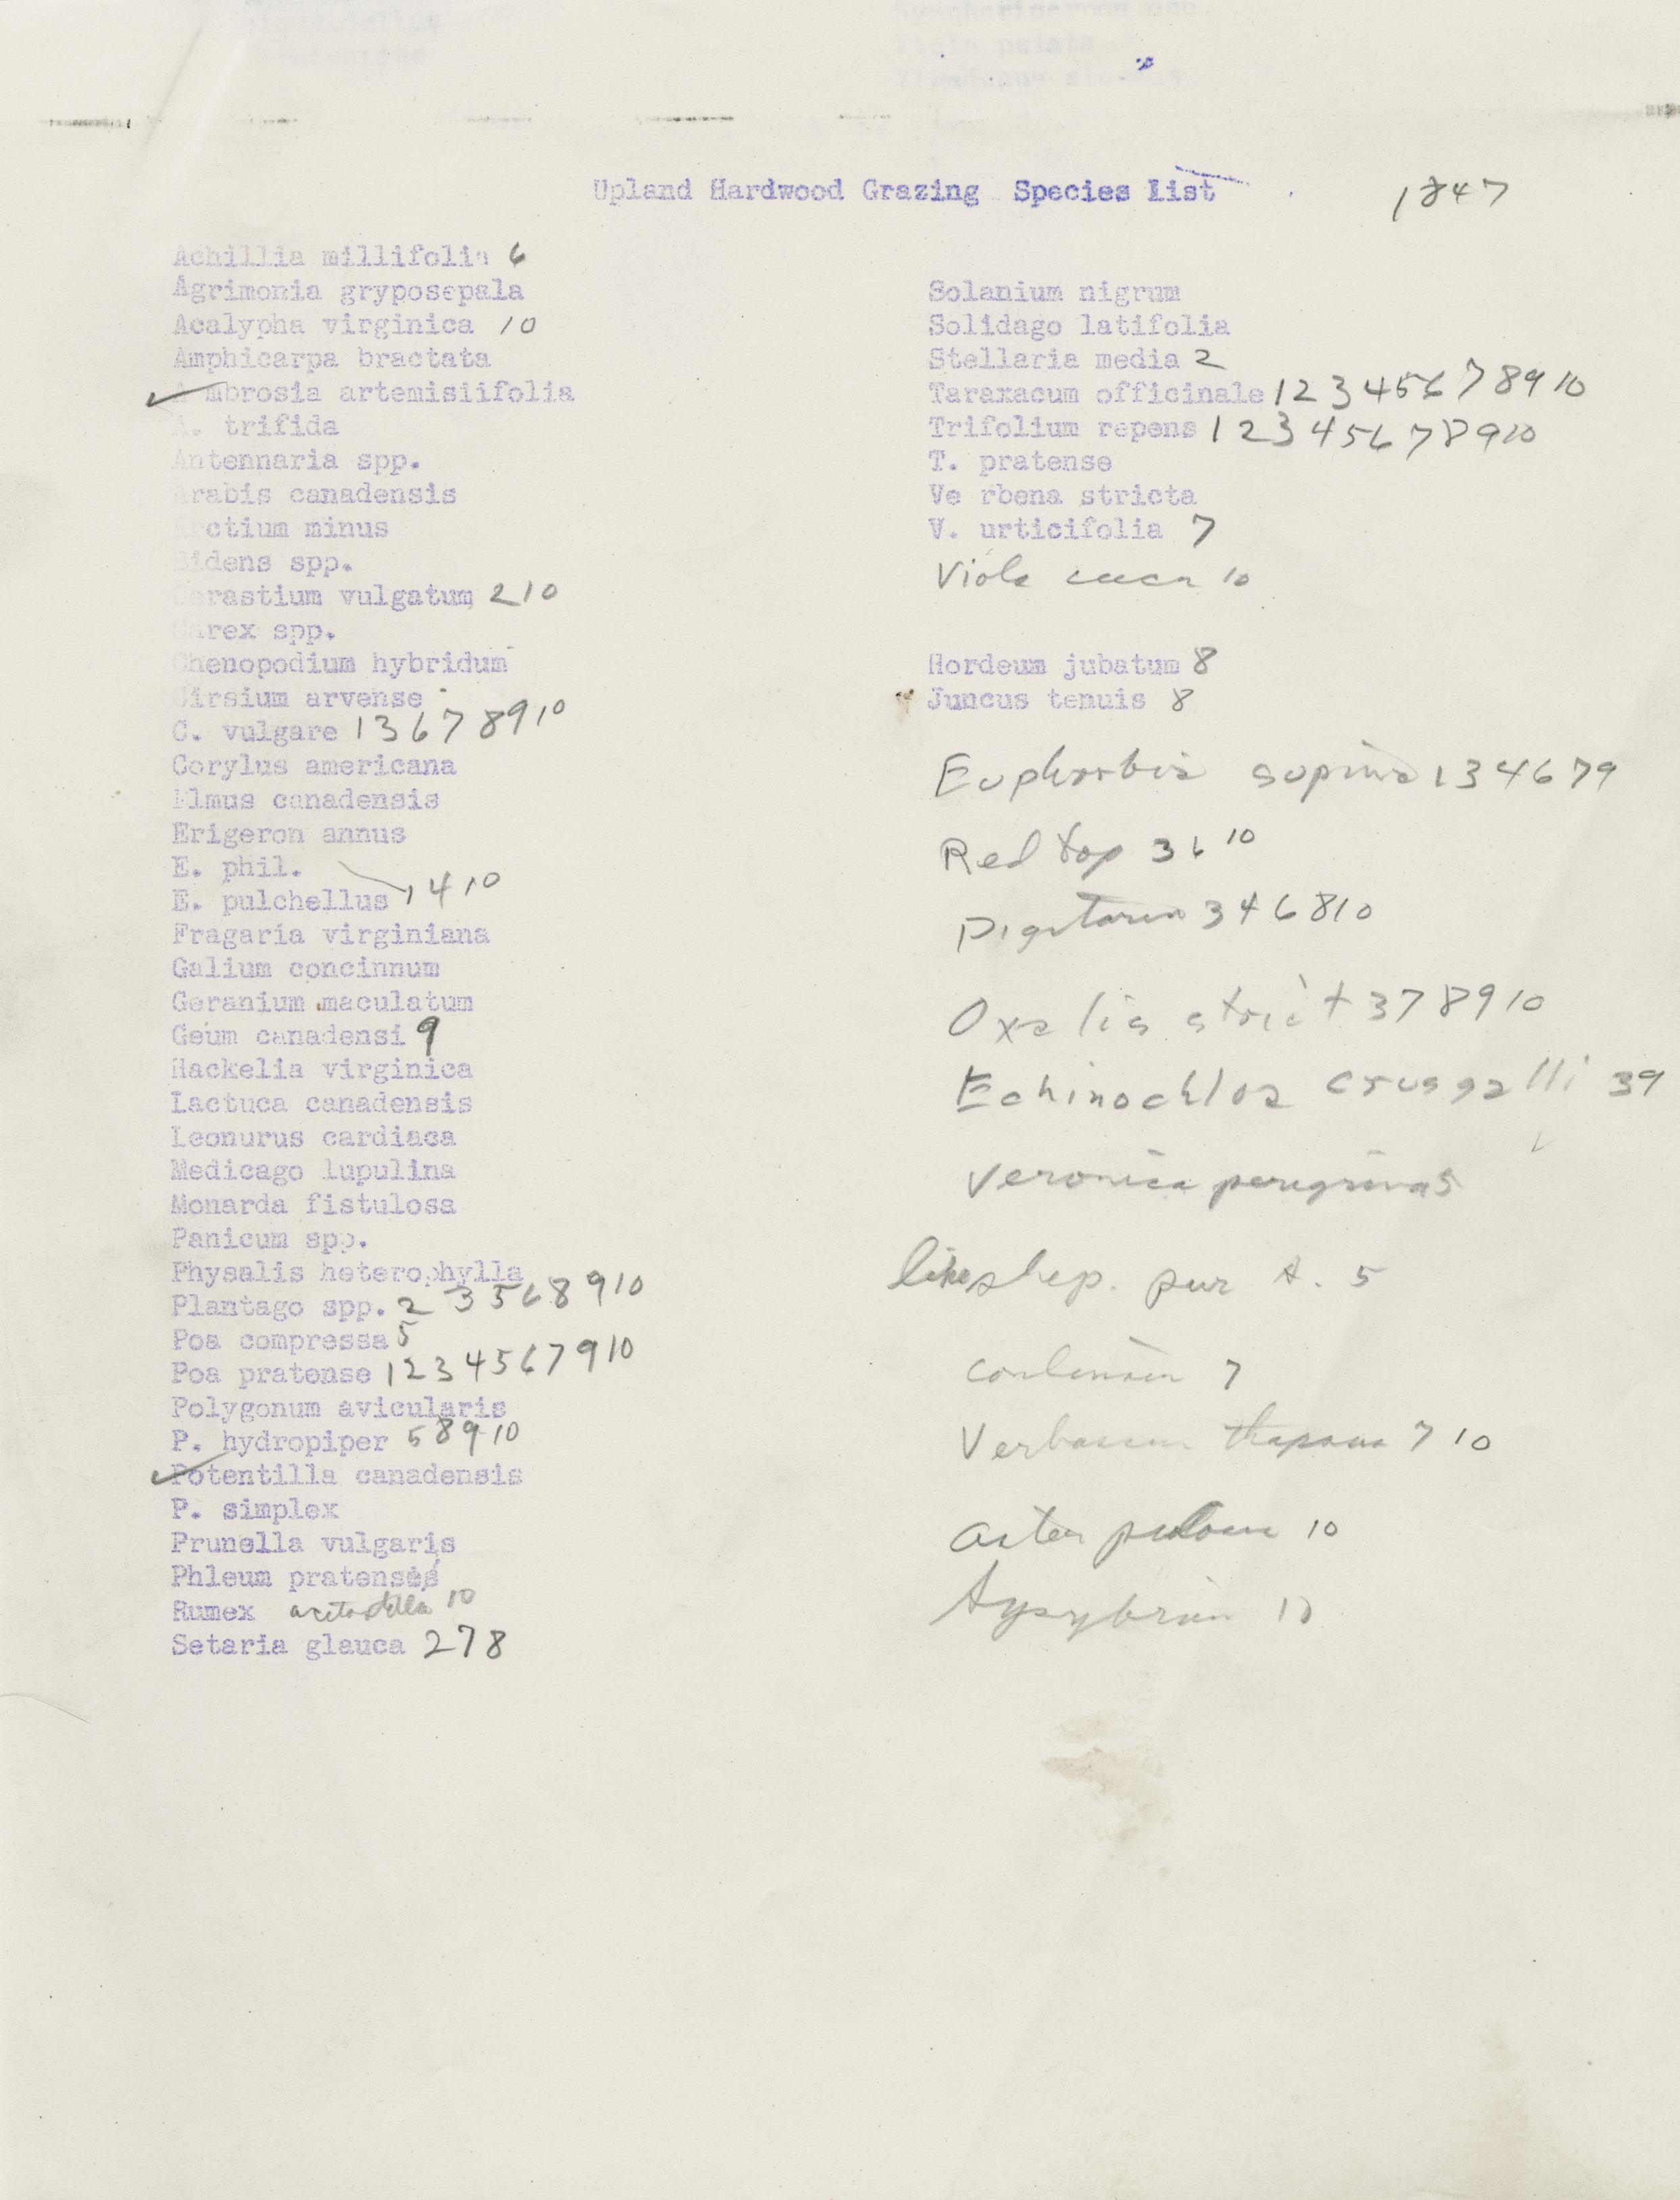 Upland Hardwood Grazing Species List 1847
Achillia millifolia 6
Agrimonia gryposepala
Acalypha virginica 10
Amphicarpa bractata
✓ Ambrosia artemisiifolia
A. trifida
Antennaria spp.
Arabis canadensis
Arctium minus
Bidens spp.
Cerastium vulgatum 2 10
Carex spp.
Chenopodium hybridum
Cirsium arvense
C. vulgare 1 3 6 7 8 9 10
Corylus americana
Elmus canadensis
Erigeron annus
E. phil.
E. pulchellus 1 4 10
Fragaria virginiana
Galium concinnum
Geranium maculatum
Geum canadensi 9
Hackelia virginica
Lactuca canadensis
Leonurus cardiaca
Medicago lupulina
Monarda fistulosa
Panicum spp.
Physalis heterophylla
Plantago spp. 2 3 5 6 8 9 10
Poa compressa 5
Poa pratense 1 2 3 4 5 6 7 9 10
Polygonum avicularis
P. hydropiper 5 8 9 10
✓ Potentilla canadensis
P. simplex
Prunella vulgaris
Phleum pratenses
Rumex acetosella 10
Setaria glauca 2 7 8
Solanium nigrum
Solidago latifolia
Stellaria media 2
Taraxacum officinale 1 2 3 4 5 6 7 8 9 10
Trifolium repens 1 2 3 4 5 6 7 8 9 10
T. pratense
Ve rbena stricta
V. urticifolia 7
Viola 10
Hordeum jubatum 8
Juncus tenuis 8
Euphorbia supina 1 3 4 6 7 9
Red top 3 6 10
Digitaria 3 4 6 8 10
Oxalis strict 3 7 8 9 10
Echinochloa crusgalli 3 9
Veronica peregrina 5
like shep. pur 5
7
Verbascum thapsus 7 10
Aster 10
10